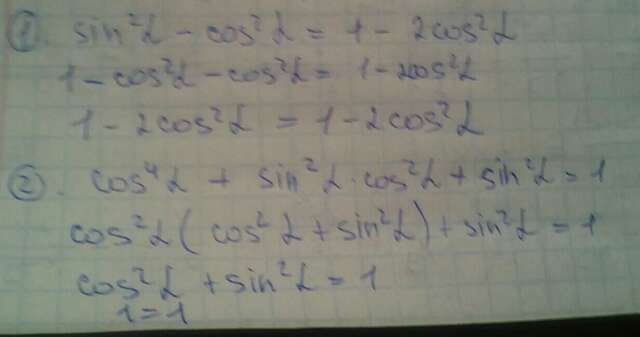 ①. sin²α - cos²α = 1 - 2cos²α
1 - cos²α - cos²α = 1 - 2cos²α
1 - 2cos²α = 1 - 2cos²α
②. cos⁴α + sin²α · cos²α + sin²α = 1
cos²α (cos²α + sin²α) + sin²α = 1
cos²α + sin²α = 1
1 = 1